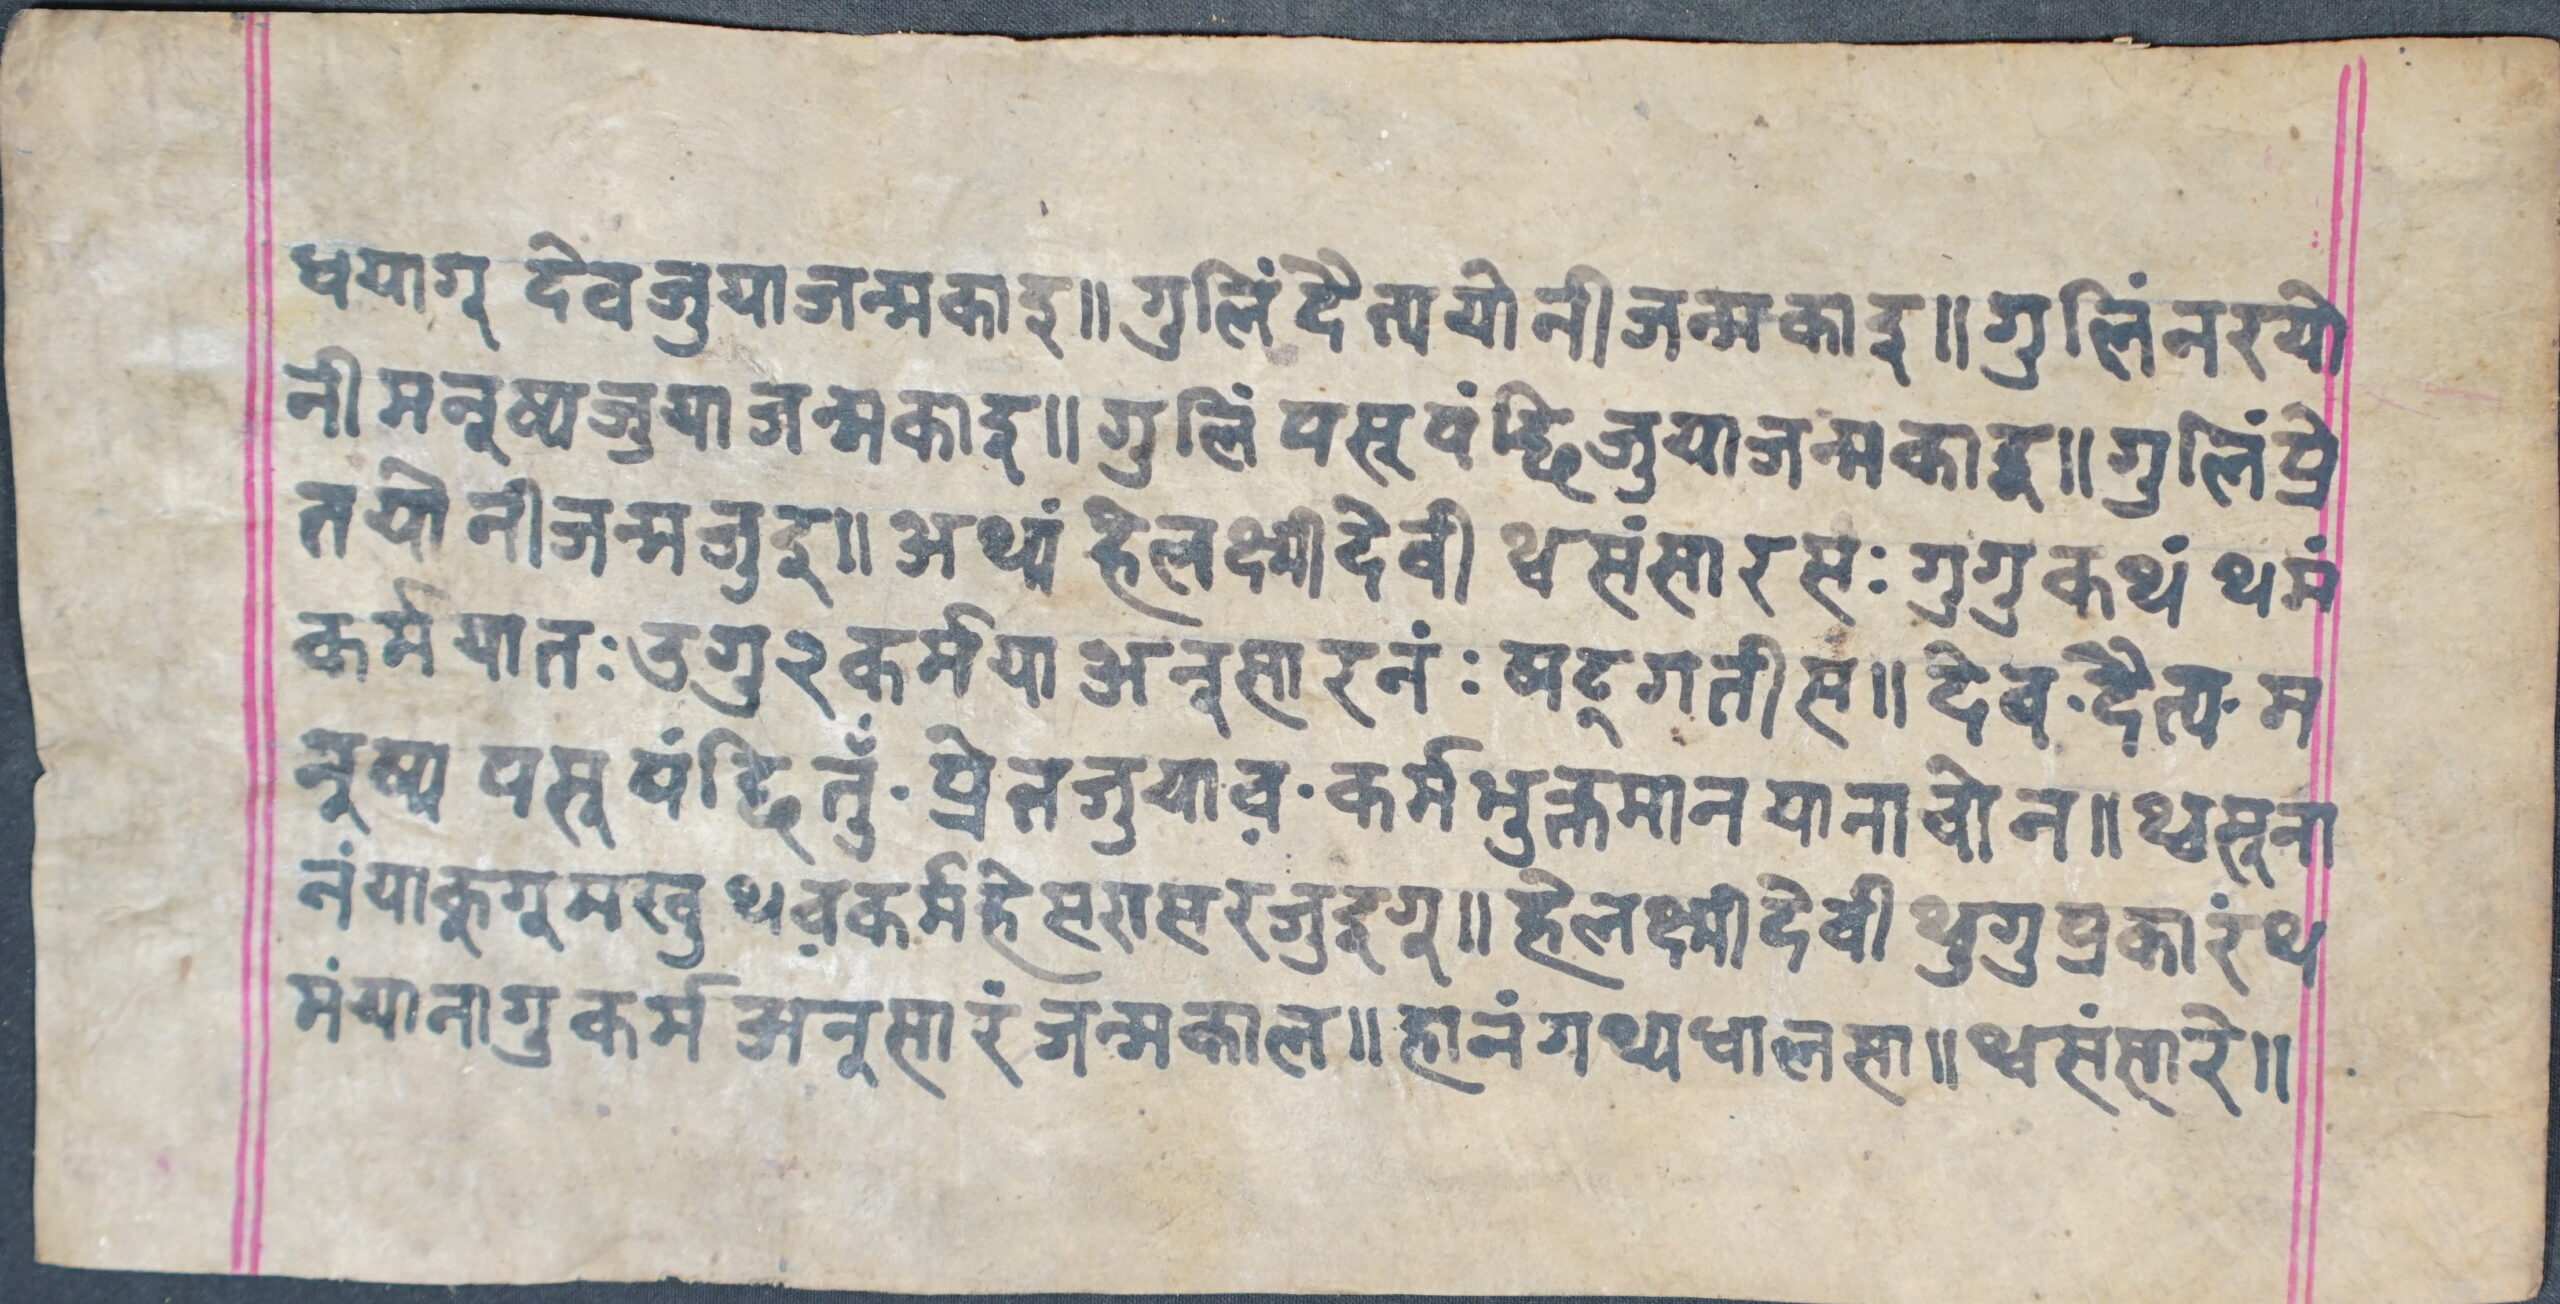 ध्वयागू देवजुयाजन्मकाइ॥ गुलिं दैत्ययोनीजन्मकाइ॥ गुलिं नरयो
नी मनूष्यजुयाजन्मकाइ॥ गुलिं पसूपंछिजुयाजन्मकाइ॥ गुलिं प्रे
तयोनीजन्मजुइ॥ अथ्यं हेलक्ष्मीदेवी थ्वसंसारसः गुगुकथं थमं
कर्मयातः उगु२कर्मया अनूसारनंः षट्गतीस॥ देव·दैत्य·म
नूष्य पसूपंछि तुँ·प्रेतजुयाव·कर्मभुक्तमानयानाचोन॥ थ्वसूना
नंयाकुगूमखु थवकर्महेसरासरजुइगू॥ हेलक्ष्मीदेवी थुगुप्रकारंथ
मंयानागु कर्म अनूसारं जन्मकाल॥ हानंगथ्यधालसा॥ थ्वसंसारे॥